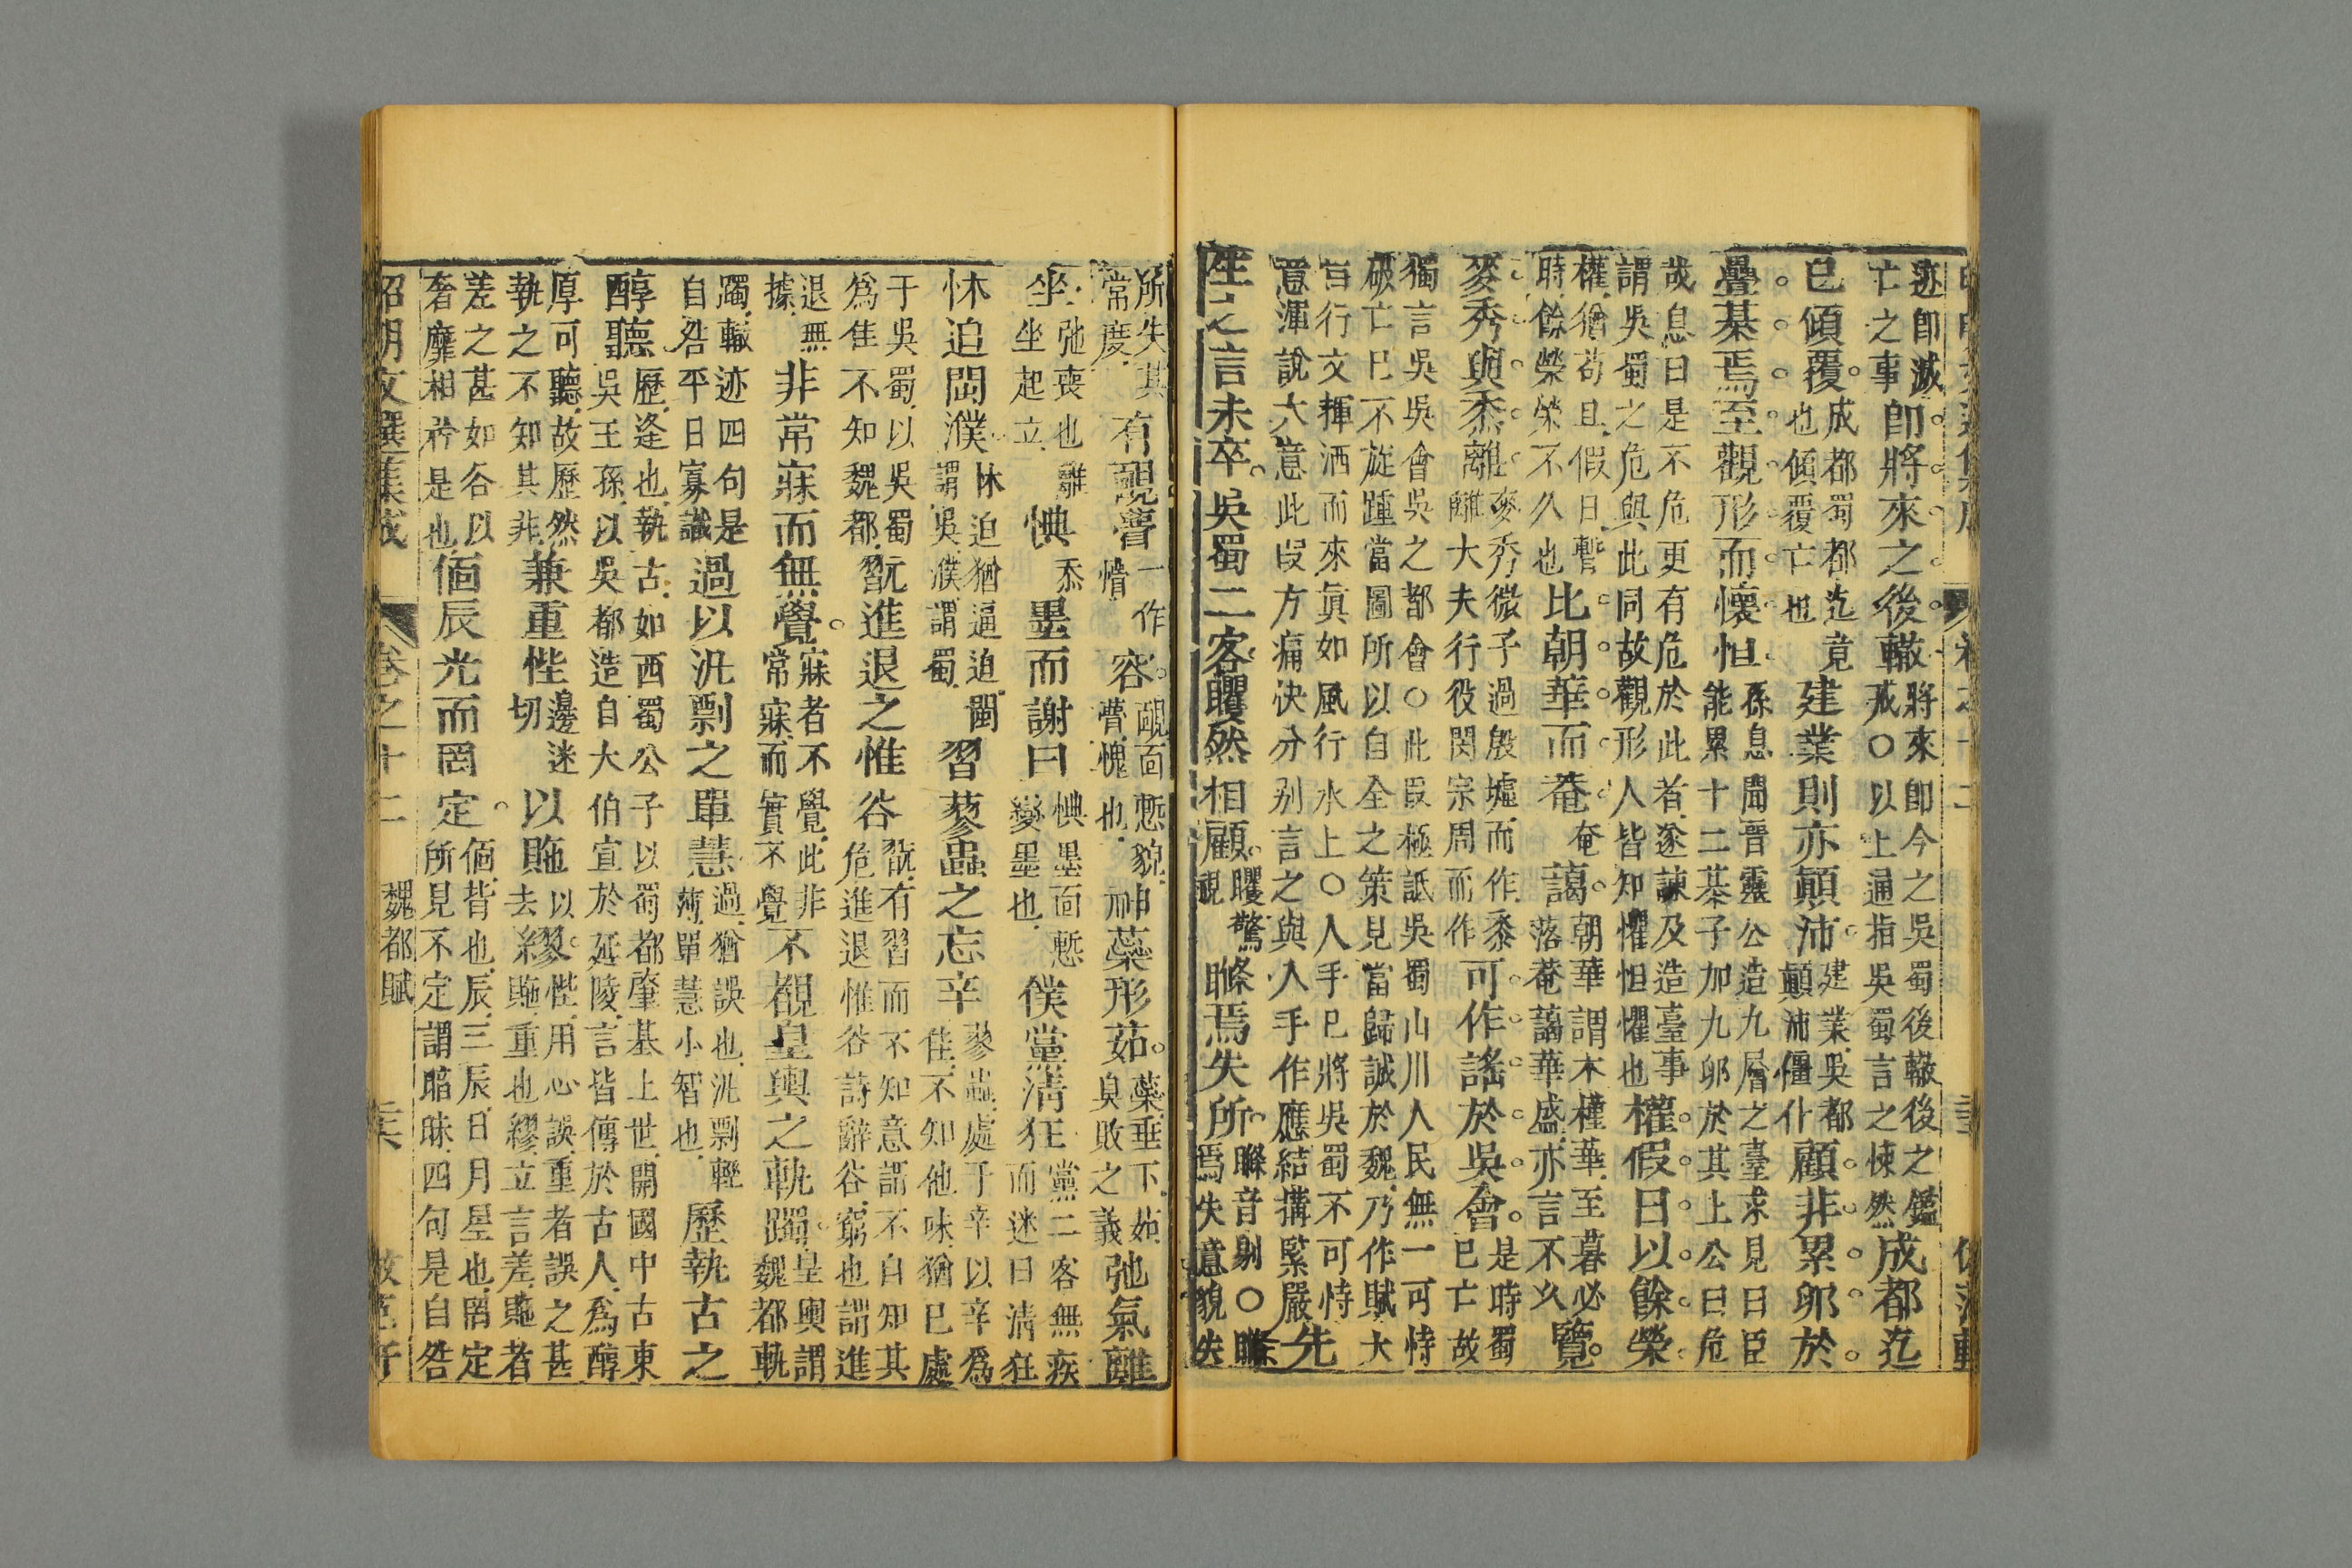 迹即滅亡之事即將來之後轍將來即今之吳蜀後轍後之鑑戒〇以上通指吳蜀言之悚然成都迄
已傾覆成都蜀都迄竟也傾覆亡也建業則亦顛沛建業吳都顛沛僵仆顧非累卵於
疊棊焉至觀形而懷怛孫息聞晉靈公造九層之臺求見曰臣能累十二棊子加九卵於其上公曰危
哉息曰是不危更有危於此者遂諫及造臺事謂吳蜀之危與此同故觀形人皆知懼怛懼也權假日以餘榮
權猶苟且假日暫時餘榮榮不久也比朝華而菴菴藹朝華謂木槿華至暮必落菴藹華盛亦言不久覽
麥秀與黍離麥秀微子過殷墟而作黍離大夫行役閔宗周而作可作謠於吳會是時蜀已亡故
獨言吳吳會吳之都會〇此段極詆吳蜀山川人民無一可恃破亡巳不旋踵當圖所以自全之策見當歸誠於魏乃作賦大
旨行文揮洒而來眞如風行水上〇人手巳將吳蜀不可恃意渾說大意此段方痛快分别言之與入手作應結搆緊嚴先
生之言未卒吳蜀二客矍然相顧矍驚視䁾焉失所䁾音剔〇䁾焉失意貌失
所失其常度有靦瞢一作懵容靦面慙貌瞢愧也神蘂形茹蘂垂下茹臭敗之義弛氣離
坐弛喪也離坐坐起立㥏忝墨而謝曰㥏墨面慙變墨也僕黨淸狂黨二客無疾而迷曰清狂
怵迫閩濮怵迫猶逼迫閩謂吳濮謂蜀習蓼蟲之忘辛蓼蟲處于辛以辛爲佳不知他味猶巳處
于吳蜀以吳蜀爲佳不知魏都翫進退之惟谷翫有習而不知意謂不自知其危進退惟谷詩辭谷窮也謂進
退無據非常寐而無覺寐者不覺此非常寐而實不覺不覩皇輿之軌躅皇輿謂魏都軌
躅轍迹四句是自咎平日寡識過以汎剽之單慧過猶誤也汎剽輕薄單慧小智也歷執古之
醇聽歷逢也執古如西蜀公子以蜀都肇基上世開國中古東吳王孫以吳都造自大伯宣於延陵言皆傳於古人爲醇
厚可聽故歷然執之不知其非兼重悂邊迷切以貤以繆悂用心誤重者誤之甚去糸貤重也繆立言差貤者
差之甚如各以奢靡相矜是也偭辰光而罔定偭皆也辰三辰日月星也罔定所見不定謂暗昧四句是自咎
昭明文選集成 卷之十二 魏都賦